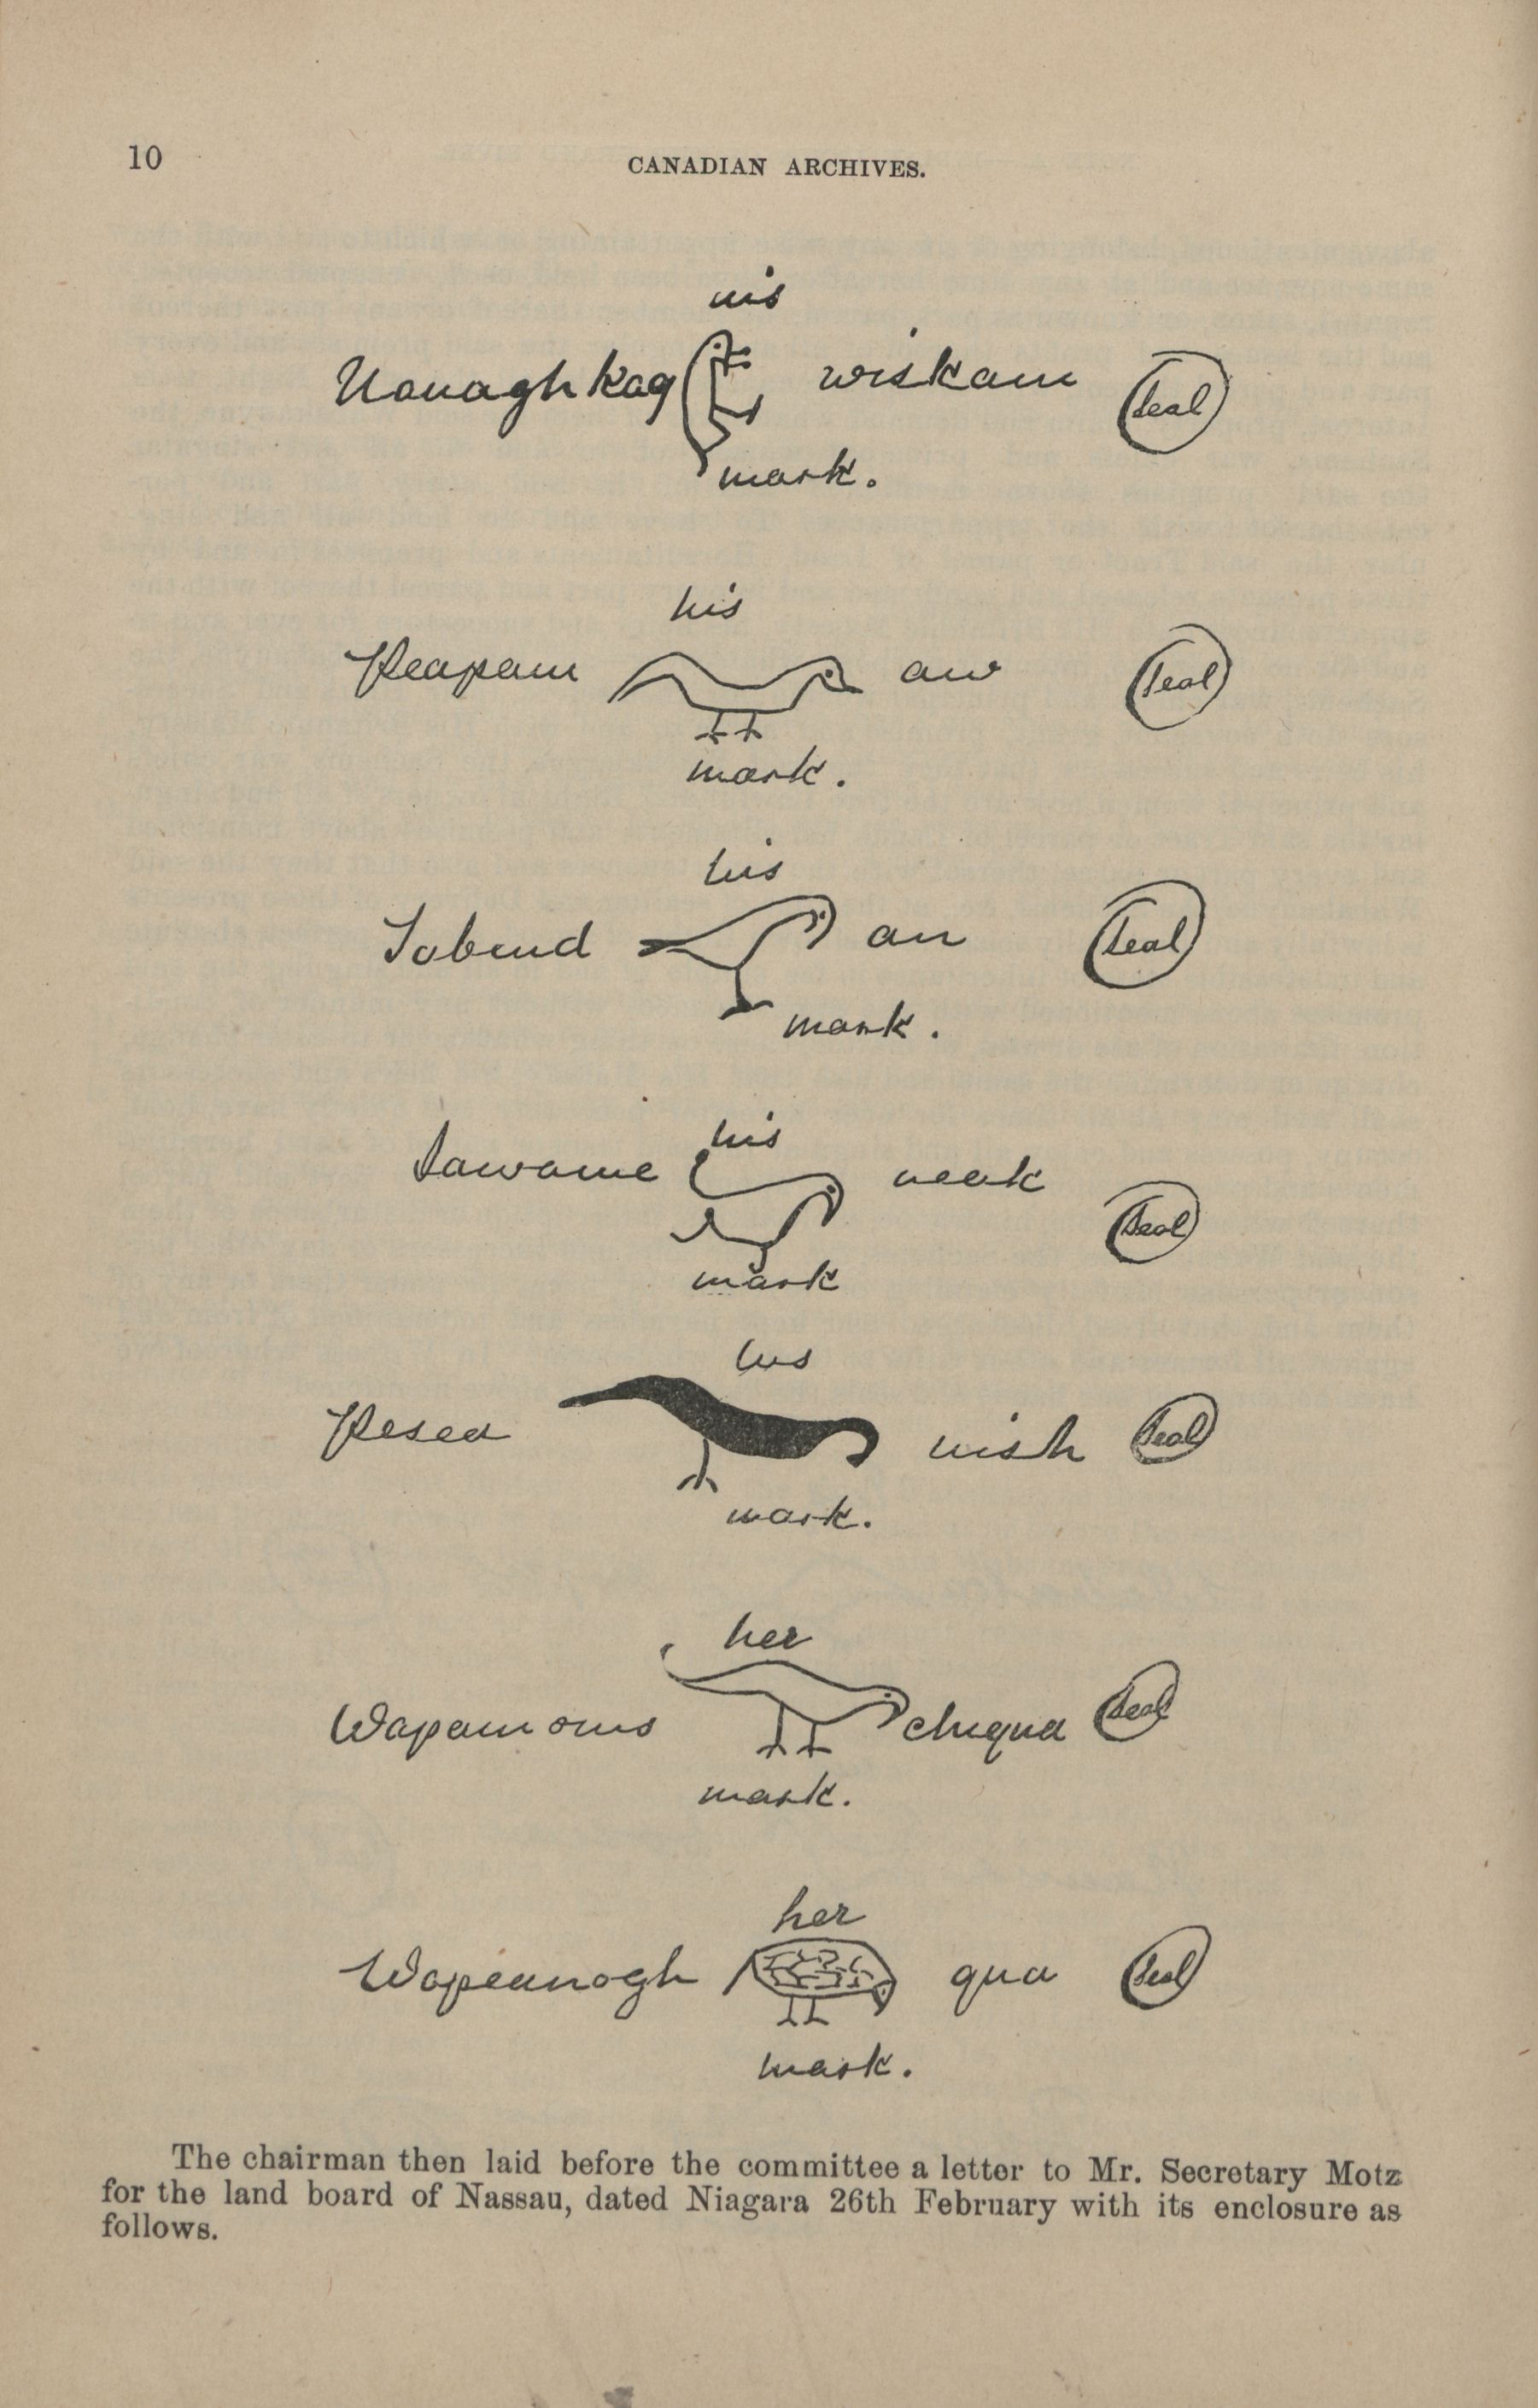 10
CANADIAN ARCHIVES.
his
Nonaghkag wiskam Seal
mark.
his
Peapam aw Seal
mark.
his
Tobend an Seal
mark.
his
Sawame neek Seal
mark
his
Pesea nish Seal
mark.
her
Wapam oms chiqua Seal
mark.
her
Wapeanogh qua Seal
mark.
The chairman then laid before the committee a letter to Mr. Secretary Motz
for the land board of Nassau, dated Niagara 26th February with its enclosure as
follows.